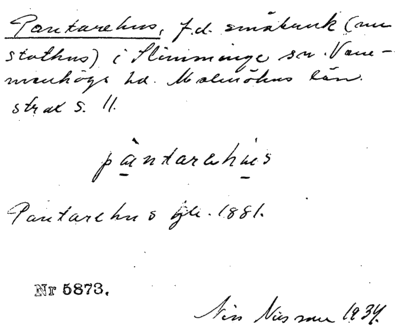 Pantarehus, f.d. småbruk (nu
stathus) i Slimminge sn. Vemmenhögs hd. Malmöhus län.
strax S. 11.
pantarehus
Pantarehus gk. 1881.
Nr 5873.
Nils Nilsson 1934.